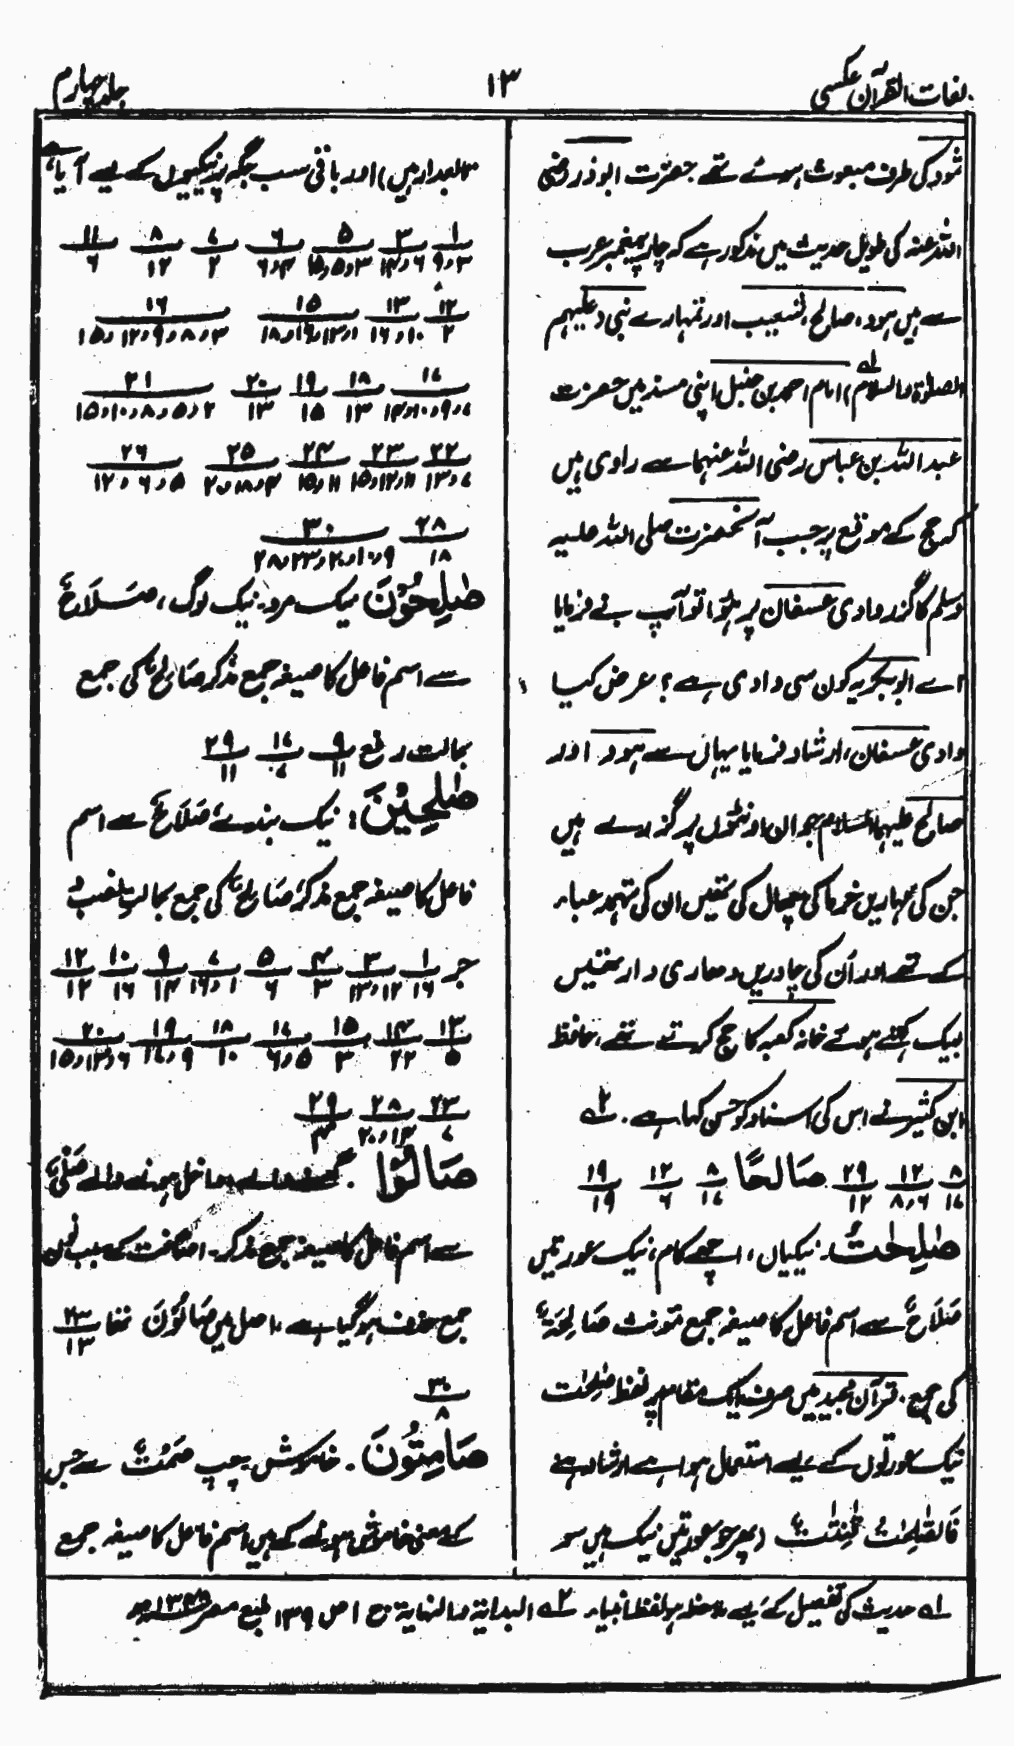 لغات القرآن عکسی
۱۳
جلد چہارم
ثمود کی طرف مبعوث ہوئے تھے حضرت ابوذر رضی
اللہ عنہ کی طویل حدیث میں مذکور ہے کہ چار پیغمبر عرب
سے ہیں ہود، صالح، شعیب اور تمہارے نبی (علیہم
الصلوٰۃ والسلام) ۱ے امام احمد بن حنبل اپنی مسند میں حضرت
عبد اللہ بن عباس رضی اللہ عنہما سے راوی ہیں
کہ حج کے موقع پر جب آنحضرت صلی اللہ علیہ
وسلم کا گزر وادی عسفان پر ہوا تو آپ نے فرمایا
اے ابوبکر یہ کون سی وادی ہے؟ عرض کیا
وادی عسفان، ارشاد فرمایا یہاں سے ہود اور
صالح علیہما السلام جوان اونٹوں پر گزرے ہیں
جن کی مہاریں خرما کی چھال کی تھیں ان کی تہمد عباء
کے تھے اور اُن کی چادریں دھاری دار تھیں
لبیک کہتے ہوئے خانہ کعبہ کا حج کرتے تھے، حافظ
ابن کثیر نے اس کی اسناد کو حسن کہا ہے۔ ۲ے
۸/۱۷ ۱۲/۸،۶ ۲۹/۱۲ صَالِحًا ۸/۱۷ ۱۲/۶ ۱۹/۱۹
صٰلِحٰتُ۔ نیکیاں، اچھے کام، نیک عورتیں
صَلَاحٌ سے اسم فاعل کا صیغہ جمع مؤنث صَالِحَۃٌ
کی جمع۔ قرآن مجید میں صرف ایک مقام پر لفظ صٰلِحٰت
نیک عورتوں کے لیے استعمال ہوا ہے ارشاد ہے
فَالصّٰلِحٰتُ قٰنِتٰتٌ (پھر جو عورتیں نیک ہیں سو
تابعدار ہیں) اور باقی سب جگہ پر نیکیوں کے لیے آیا ہے
۱/۳،۹ ۳/۶،۱۴ ۵/۳،۵،۱۵ ۶/۴،۶ ۷/۲ ۸/۱۲ ۱۱/۶
۱۲/۲ ۱۳/۱۰،۱۶ ۱۵/۱،۱۳،۱۹،۱۸ ۱۶/۳،۸،۹،۱۲،۱۵
۱۷/۷،۹،۱۰،۱۴ ۱۸/۱۳ ۱۹/۱۵ ۲۰/۱۳ ۲۱/۲،۵،۸،۱۰،۱۵
۲۲/۷،۱۳ ۲۳/۱۱،۱۲،۱۵ ۲۴/۱۱،۱۵ ۲۵/۴،۱۸،۲۰ ۲۶/۵،۶،۱۲
۲۸/۱۸ ۳۰/۹،۱۰،۲۰،۲۳،۲۸
صٰلِحُوْنَ نیک مرد۔ نیک لوگ، صَلَاحٌ
سے اسم فاعل کا صیغہ جمع مذکر صَالِحٌ کی جمع
بحالت رفع ۹/۱۱ ۱۷/۷ ۲۹/۱۱
صٰلِحِیْنَ: نیک بندے صَلَاحٌ سے اسم
فاعل کا صیغہ جمع مذکر، صَالِحٌ کی جمع بحالتِ نصب و
جر ۱/۱۶ ۳/۱۲،۱۳ ۴/۳ ۵/۶ ۷/۱،۱۶ ۹/۱۴ ۱۰/۱۶ ۱۲/۱۲
۱۳/۵ ۱۴/۲۲ ۱۵/۳ ۱۷/۵،۶ ۱۸/۱۰ ۱۹/۹،۱۷ ۲۰/۶،۱۳،۱۵
۲۳/۷ ۲۸/۱۴،۲۰ ۲۹/۴
صَالُوْا۔ گھسنے والے، داخل ہونے والے صَلْیٌ
سے اسم فاعل کا صیغہ جمع مذکر۔ اضافت کے سبب نون
جمع حذف ہو گیا ہے، اصل میں صَالُوْنَ تھا ۲۳/۱۳
۳۰/۸
صَامِتُوْنَ۔ خاموش چپ صَمْتٌ سے جس
کے معنی خاموش ہونے کے ہیں اسم فاعل کا صیغہ جمع
۱ے حدیث کی تفصیل کے لیے ملاحظہ ہو لفظ انبیاء ۲ے البدایۃ والنہایۃ ج ۱ ص ۱۳۹ طبع مصر